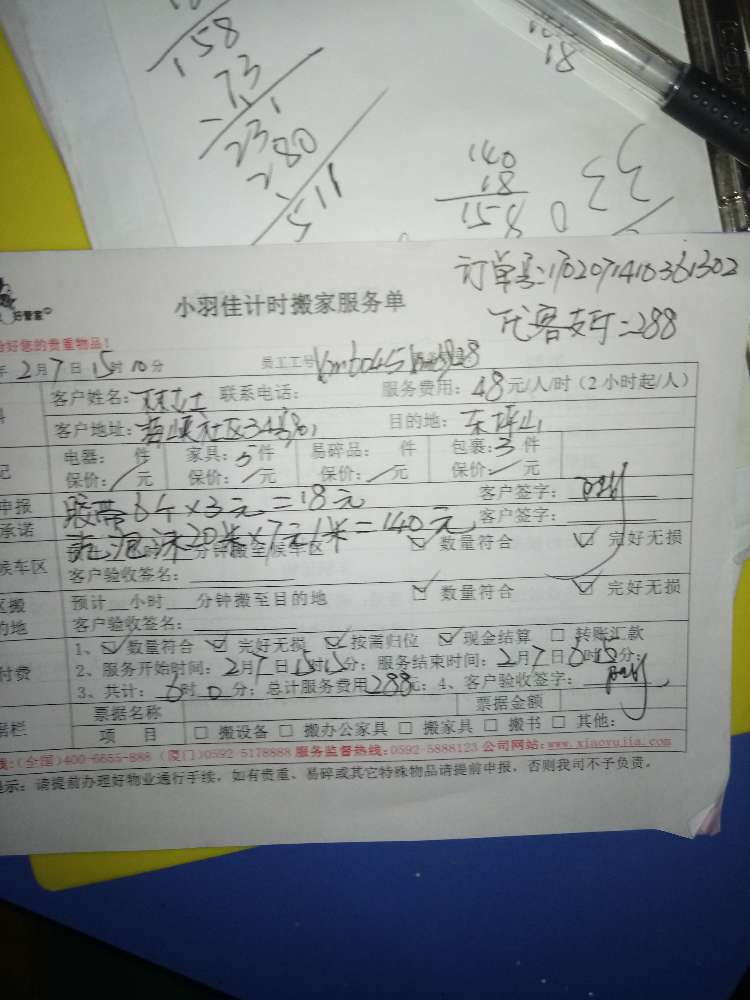 158
73
231
280
511
18
140
18
158
订单号:1702071410361302
小羽佳计时搬家服务单
代客支付=288
好管家
好您的贵重物品!
年2月7日15时10分 员工工号
客户姓名: 联系电话: 服务费用:48元/人/时(2小时起/人)
客户地址: 目的地:东坪山
电器: 件 家具:5件 易碎品: 件 包裹:3件
保价: 元 保价: 元 保价: 元 保价: 元
申报 胶带6个×3元=18元 客户签字:
承诺 泡沫20米×7元/米=140元 客户签字:
候车区 分钟搬至候车区 数量符合 完好无损
客户验收签名:
区搬 预计 小时 分钟搬至目的地 数量符合 完好无损
的地 客户验收签名:
付费 1、数量符合 完好无损 按需归位 现金结算 转账汇款
2、服务开始时间:2月7日15时15分;服务结束时间:2月7日 时15分;
3、共计:6时0分;总计服务费用288元;4、客户验收签字:
据栏 票据名称 票据金额
项 目 搬设备 搬办公家具 搬家具 搬书 其他:
线:(全国)400-6655-888 (厦门)0592-5178888 服务监督热线:0592-5888123 公司网站:www.xiaoyujia.com
提示:请提前办理好物业通行手续,如有贵重、易碎或其它特殊物品请提前申报,否则我司不予负责。